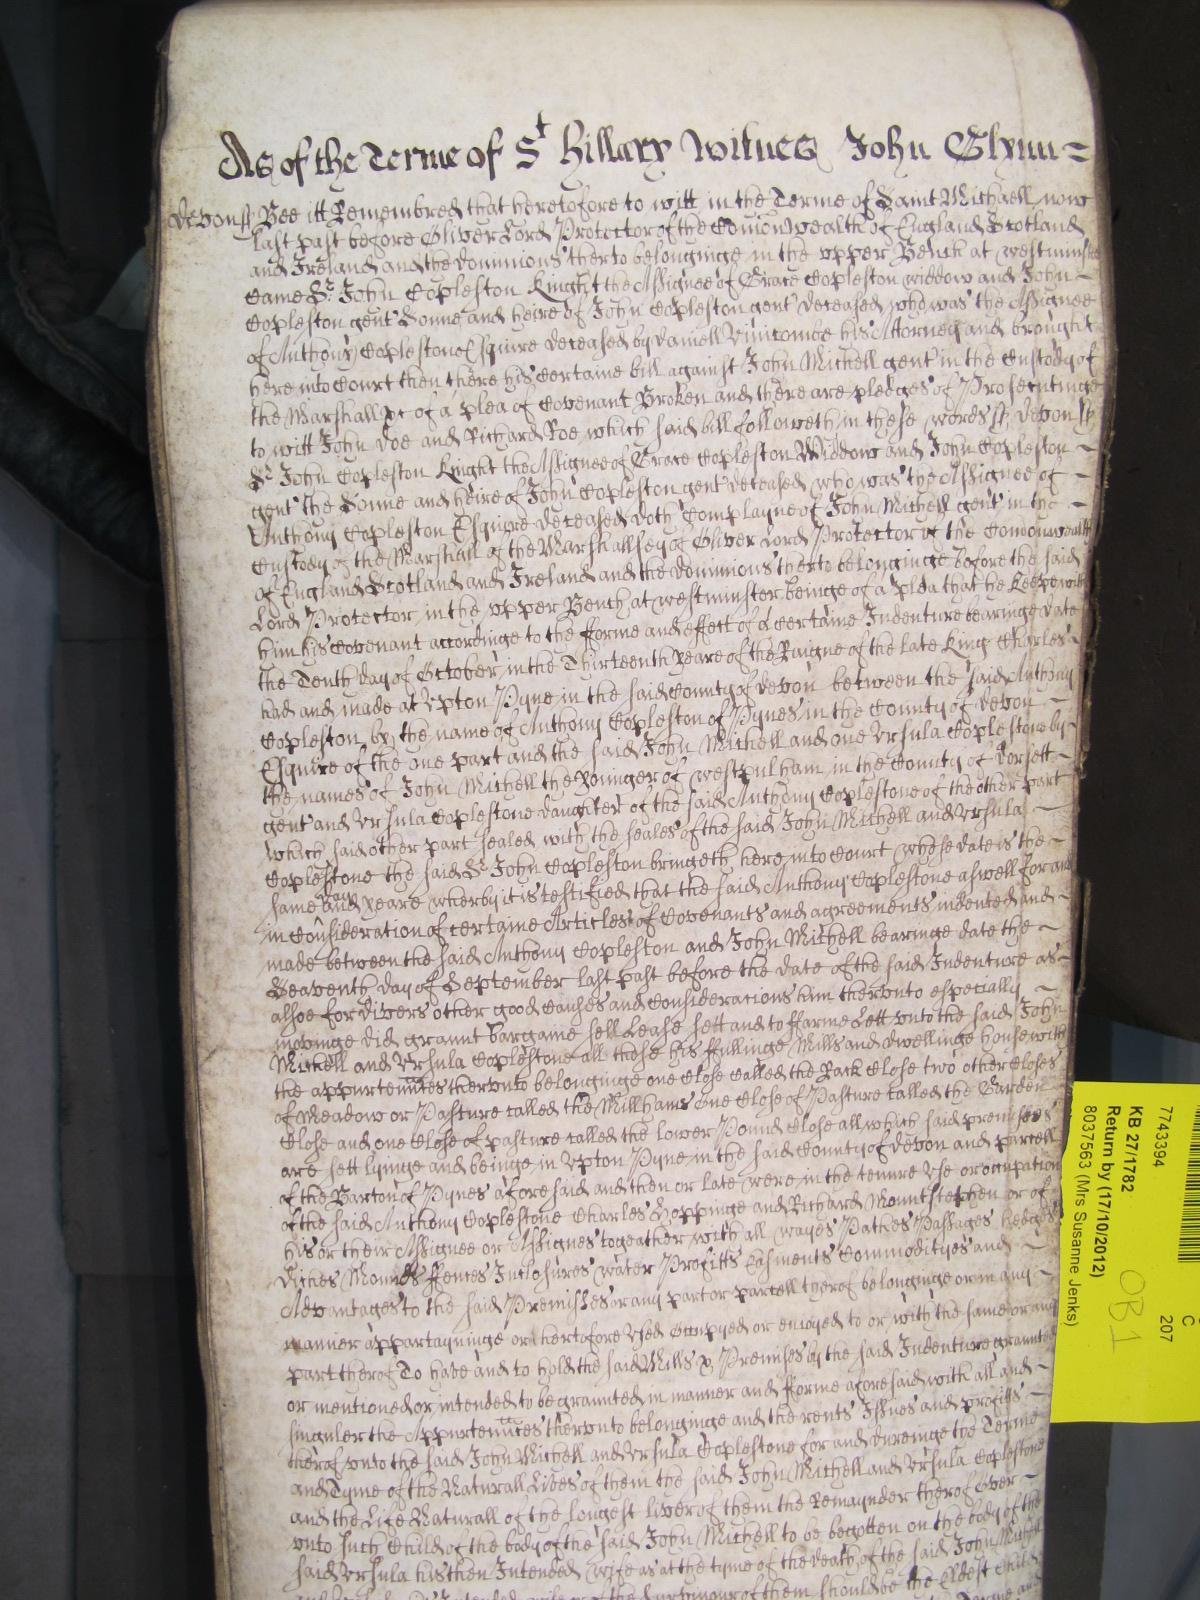 As of the Terme of St Hillary Witnes John Glynn
Devon ss Bee itt Remembred that heretofore to witt in the Terme of Saint Michaell now
last past before Oliver Lord Protector of the Comonwealth of England Scotland
and Ireland and the dominions therto belonginge in the upper Bench at westminster
Came Sr. John Copleston Knight the Assignee of Grace Copleston widdow and John
Copleston gent Sonne and heire of John Copleston gent deceased who was the Assignee
of Anthony Coplestone Esquire deceased by Daniell Vinicombe his Attorney and brought
here into Court then there his certaine bill against John Michell gent in the Custody of
the Marshall &c of a plea of Covenant Broken and there are pledges of Prosecutinge
to witt John Doe and Richard Roe which said bill followeth in these words ss Devon ss
Sr John Copleston Knight the Assignee of Grace Copleston Widdow and John Copleston
gent the Sonne and heire of John Copleston gent deceased who was the Assignee of
Anthony Copleston Esquire deceased doth Complayne of John Michell gent in the
Custody of the Marshall of the Marshallsey of Oliver Lord Protector of the Comonwealth
of England Scotland and Ireland and the dominions therto belonginge before the said
Lord Protector in the upper Bench at westminster beinge of a plea that he Keepe with
him his Covenant accordinge to the fforme and effect of a certaine Indenture bearinge date
the Tenth day of October in the Thirteenth yeare of the Raigne of the late King Charles
had and made at Upton Pyne in the said County of Devon between the said Anthony
Copleston by the name of Anthony Copleston of Pynes in the County of Devon
Esquire of the one part and the said John Michell and one Ursula Coplestone by
the names of John Michell the younger of westpulham in the County of Dorsett
gent and Ursula Coplestone daughter of the said Anthony Coplestone of the other part
which said other part sealed with the seales of the said John Michell and Ursula
Coplestone the said Sr John Copleston bringeth here into Court whose date is the
same day and yeare wherby it is testified that the said Anthony Coplestone aswell for and
in Consideration of certaine Articles of Covenants and agreements indented and
made between the said Anthony Copleston and John Michell bearinge date the
Seaventh day of September last past before the date of the said Indenture as
alsoe for divers other good Causes and Considerations him therunto especially
movinge did graunt bargaine sell Lease sett and to ffarme Lett unto the said John
Michell and Ursula Coplestone all those his ffullinge Mills and dwellinge house with
the appurtenñces therunto belonginge one Close called the Rack Close two other Closes
of Meadow or Pasture called the Millhams one Close of Pasture called the Garden
Close and one Close of pasture called the lower Pound Close all which said premises
are sett lyinge and beinge in Upton Pyne in the said County of Devon and parcell
of the Barton of Pynes aforesaid and then or late were in the tenure Use or occupation
of the said Anthony Coplestone Charles Hoppinge and Richard Mountstephen or of
his or their Assignee or Assignes togeather with all wayes Pathes Passages hedges
ditches Mounds ffences Inclosures water Profitts Easments Commodityes and
Advantages to the said Premisses or any part or parcell therof belonginge or in any
manner appartayninge or hertofore Used Occupyed or enioyed to or with the same or any
part therof To have and to hold the said Mills & Premises by the said Indenture graunted
or mentioned or intended to be graunted in manner and fforme aforesaid with all and
singuler the Appurtenñces therunto belonginge and the rents Issues and profitts
therof unto the said John Michell and Ursula Coplestone for and dureinge the Terme
and Tyme of the Naturall Lives of them the said John Michell and Ursula Coplestone
and the Life Naturall of the longest liver of them the Remaynder therof Over
unto such Child of the body of the said John Michell to be begotten on the body of the
said Ursula his then Intended wife as at the tyme of the death of the said John Michell
should be the Eldest Child
7743394
KB 27/1782
Return by (17/10/2012)
8037563 (Mrs Susanne Jenks)
C
207
OB1